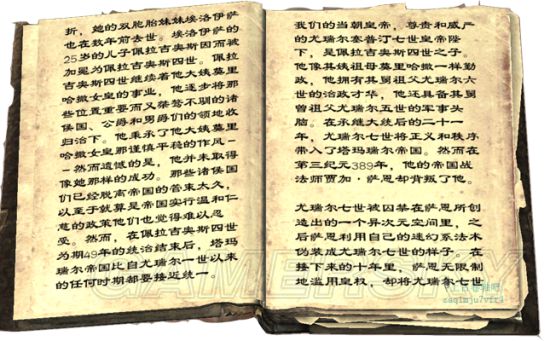 折，她的双胞胎妹妹埃洛伊萨
也在数年前去世。埃洛伊萨的
25岁的儿子佩拉吉奥斯因而被
加冕为佩拉吉奥斯四世。佩拉
吉奥斯四世继续着他大姨莫里
哈撒女皇的事业，他逐步将那
些位置重要而又桀骜不驯的诸
侯国、公爵和男爵们的领地收
归治下。他秉承了他大姨莫里
哈撒女皇那谨慎平稳的作风-
-然而遗憾的是，他并未取得
像她那样的成功。那些诸侯国
们已经脱离帝国的管束太久，
以至于就算是帝国实行温和仁
慈的政策他们也觉得难以忍
受。然而，在佩拉吉奥斯四世
为期49年的统治结束后，塔玛
瑞尔帝国比自尤瑞尔一世以来
的任何时期都要接近统一。
我们的当朝皇帝，尊贵和威严
的尤瑞尔塞普汀七世皇帝陛
下，是佩拉吉奥斯四世之子。
他像其姨祖母莫里哈撒一样勤
政，他拥有其舅祖父尤瑞尔六
世的治政才华，他还具备其舅
曾祖父尤瑞尔五世的军事头
脑。在承继大统后的二十一
年，尤瑞尔七世将正义和秩序
带入了塔玛瑞尔帝国。然而在
第三纪元389年，他的帝国战
法师贾加·萨恩却背叛了他。
尤瑞尔七世被囚禁在萨恩所创
造出的一个异次元空间里，之
后萨恩利用自己的迷幻系法术
伪装成尤瑞尔七世的样子。在
接下来的十年里，萨恩无限制
地滥用皇权，却将尤瑞尔七世
GAMERSKY